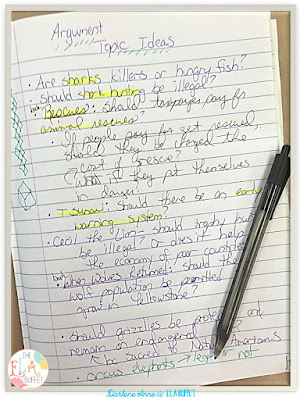 Argument
Topic Ideas
• Are sharks killers or hungry fish?
• Should shark hunting be illegal?
• Rescues: Should taxpayers pay for
animal rescues?
• If people pay for get rescued,
should they be charged the
cost of rescue?
What if they put themselves
in danger?
• Tsunami: should there be an early
warning system?
• Cecil the Lion - should trophy hunt
be illegal? or does it help
the economy of poor countries
• When Wolves Returned: Should the
wolf population be permitted
grow in Yellowstone?
• should grizzlies be protected and
remain on endangered
be sacred to Native Americans
• circus elephants → legal or not
THE
ELA
BUFFET
Darlene Anne @ ELABUFFET